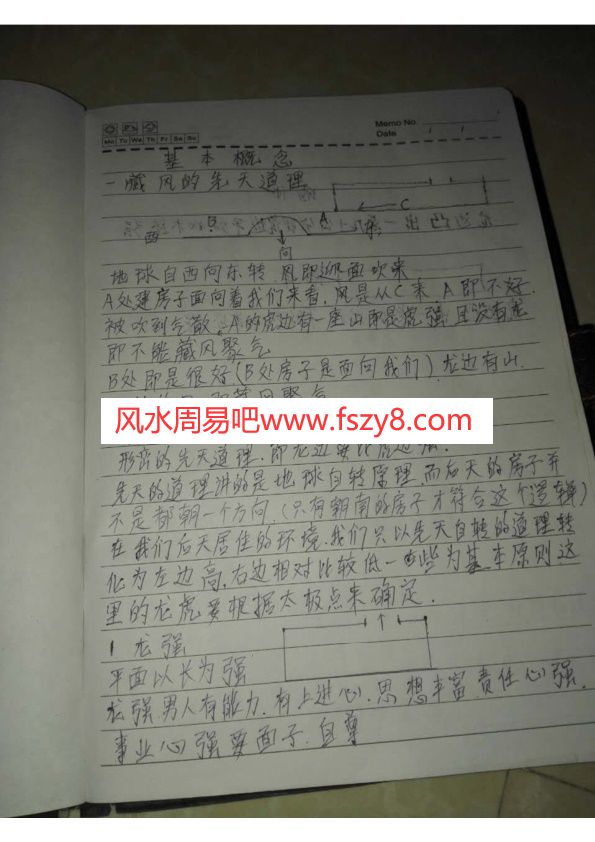 Memo No.
Mo Tu We Th Fr Sa Su
Date / /
基本概念
一藏风的先天道理
C
西 B A 东
向
地球自西向东转 风即迎面吹来
A处建房子面向着我们来看,风是从C来.A即不好.
被吹到气散.A的虎边有一座山即是虎强,且没有龙
即不能藏风聚气
B处即是很好(B处房子是面向我们).龙边有山.
风水周易吧www.fszy8.com
形峦的先天道理.即龙边要比虎边
先天的道理讲的是地球自转原理.而后天的房子并
不是都朝一个方向(只有朝南的房子才符合这个逻辑)
在我们后天居住的环境.我们只以先天自转的道理转
化为左边高.右边相对比较低一些为基本原则这
里的龙虎要根据太极点来确定.
1 龙强
平面以长为强
龙强.男人有能力.有上进心.思想丰富责任心强.
事业心强要面子.自尊